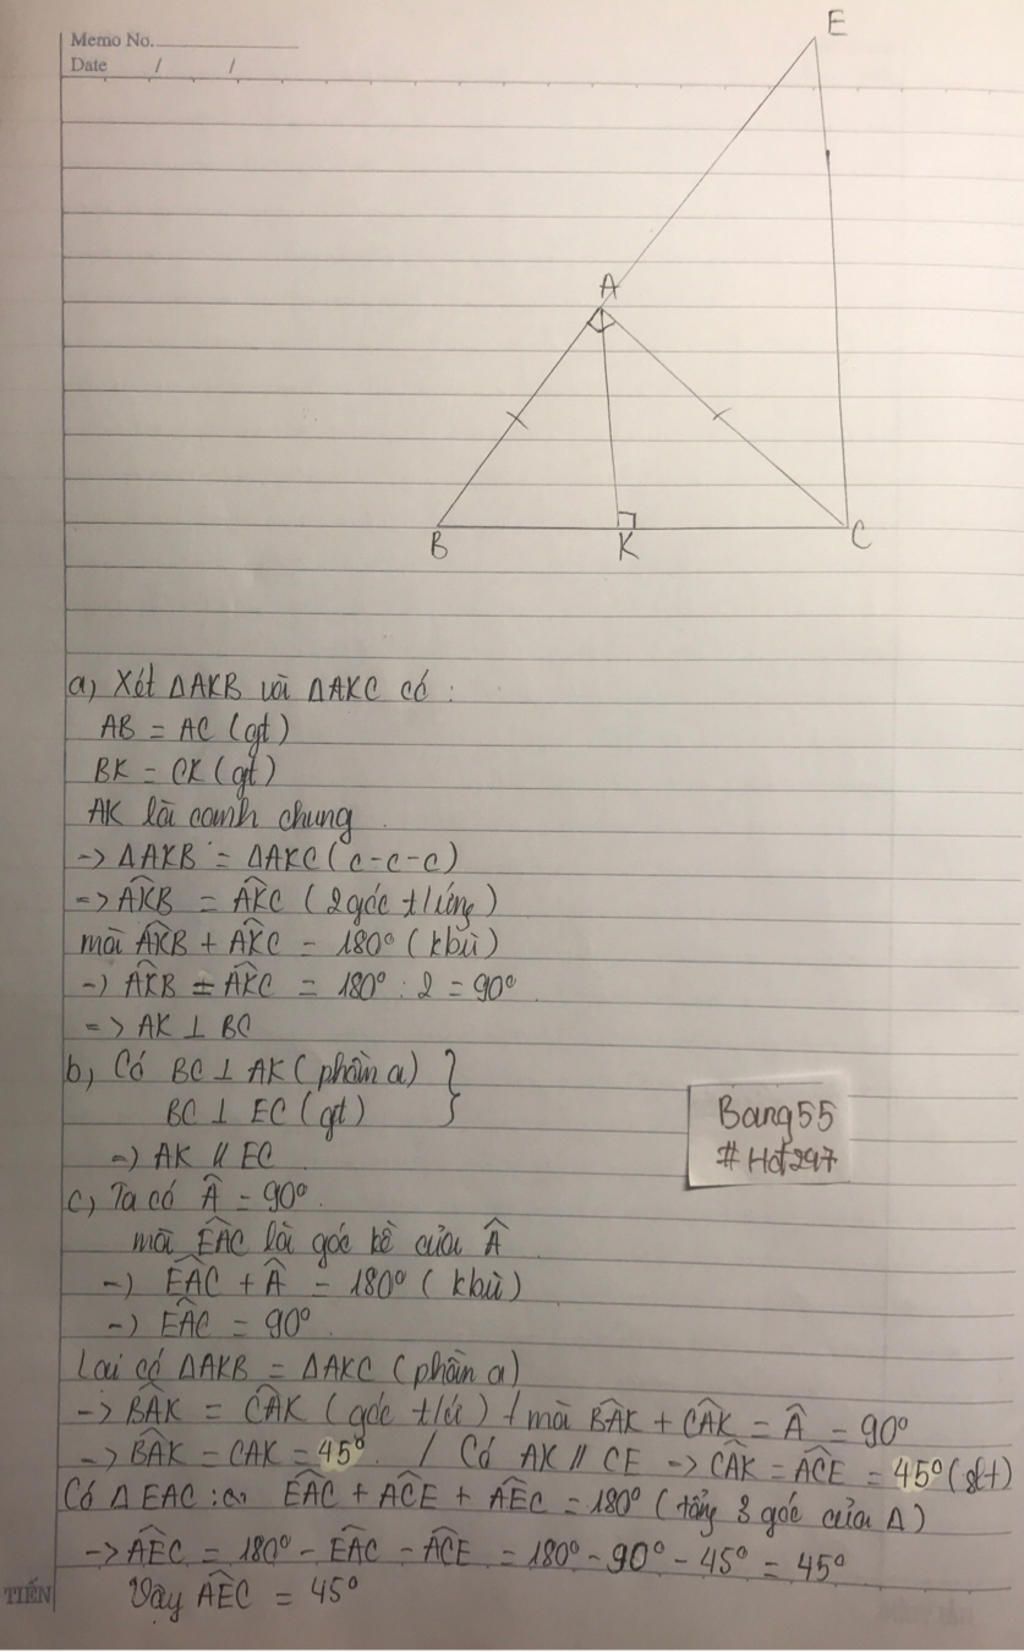 Memo No.
Date / /
E
A
B
K
C
a, Xét ΔAKB và ΔAKC có :
AB = AC (gt)
BK = CK (gt)
AK là cạnh chung
-> ΔAKB = ΔAKC (c-c-c)
=> AK̂B = AK̂C (2 góc t/ứng)
mà AK̂B + AK̂C = 180° (kbù)
-> AK̂B = AK̂C = 180° : 2 = 90°
=> AK ⊥ BC
b, Có BC ⊥ AK (phần a) }
BC ⊥ EC (gt)
=> AK // EC
Bang55
# Hot297
c, Ta có Â = 90°
mà EÂC là góc kề của Â
-> EÂC + Â = 180° (kbù)
-> EÂC = 90°
Lại có ΔAKB = ΔAKC (phần a)
-> BÂK = CÂK (góc t/ứ) / mà BÂK + CÂK = Â = 90°
-> BÂK = CAK = 45° / Có AK // CE -> CÂK = AĈE = 45° (slt)
Có ΔEAC : EÂC + AĈE + AÊC = 180° (tổng 3 góc của Δ)
-> AÊC = 180° - EÂC - AĈE = 180° - 90° - 45° = 45°
Vậy AÊC = 45°
TIẾN